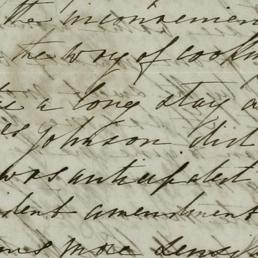 the inconvenien
the way of cookin
a long stay a
Johnson did
was anticipated
ident amendment
more densi